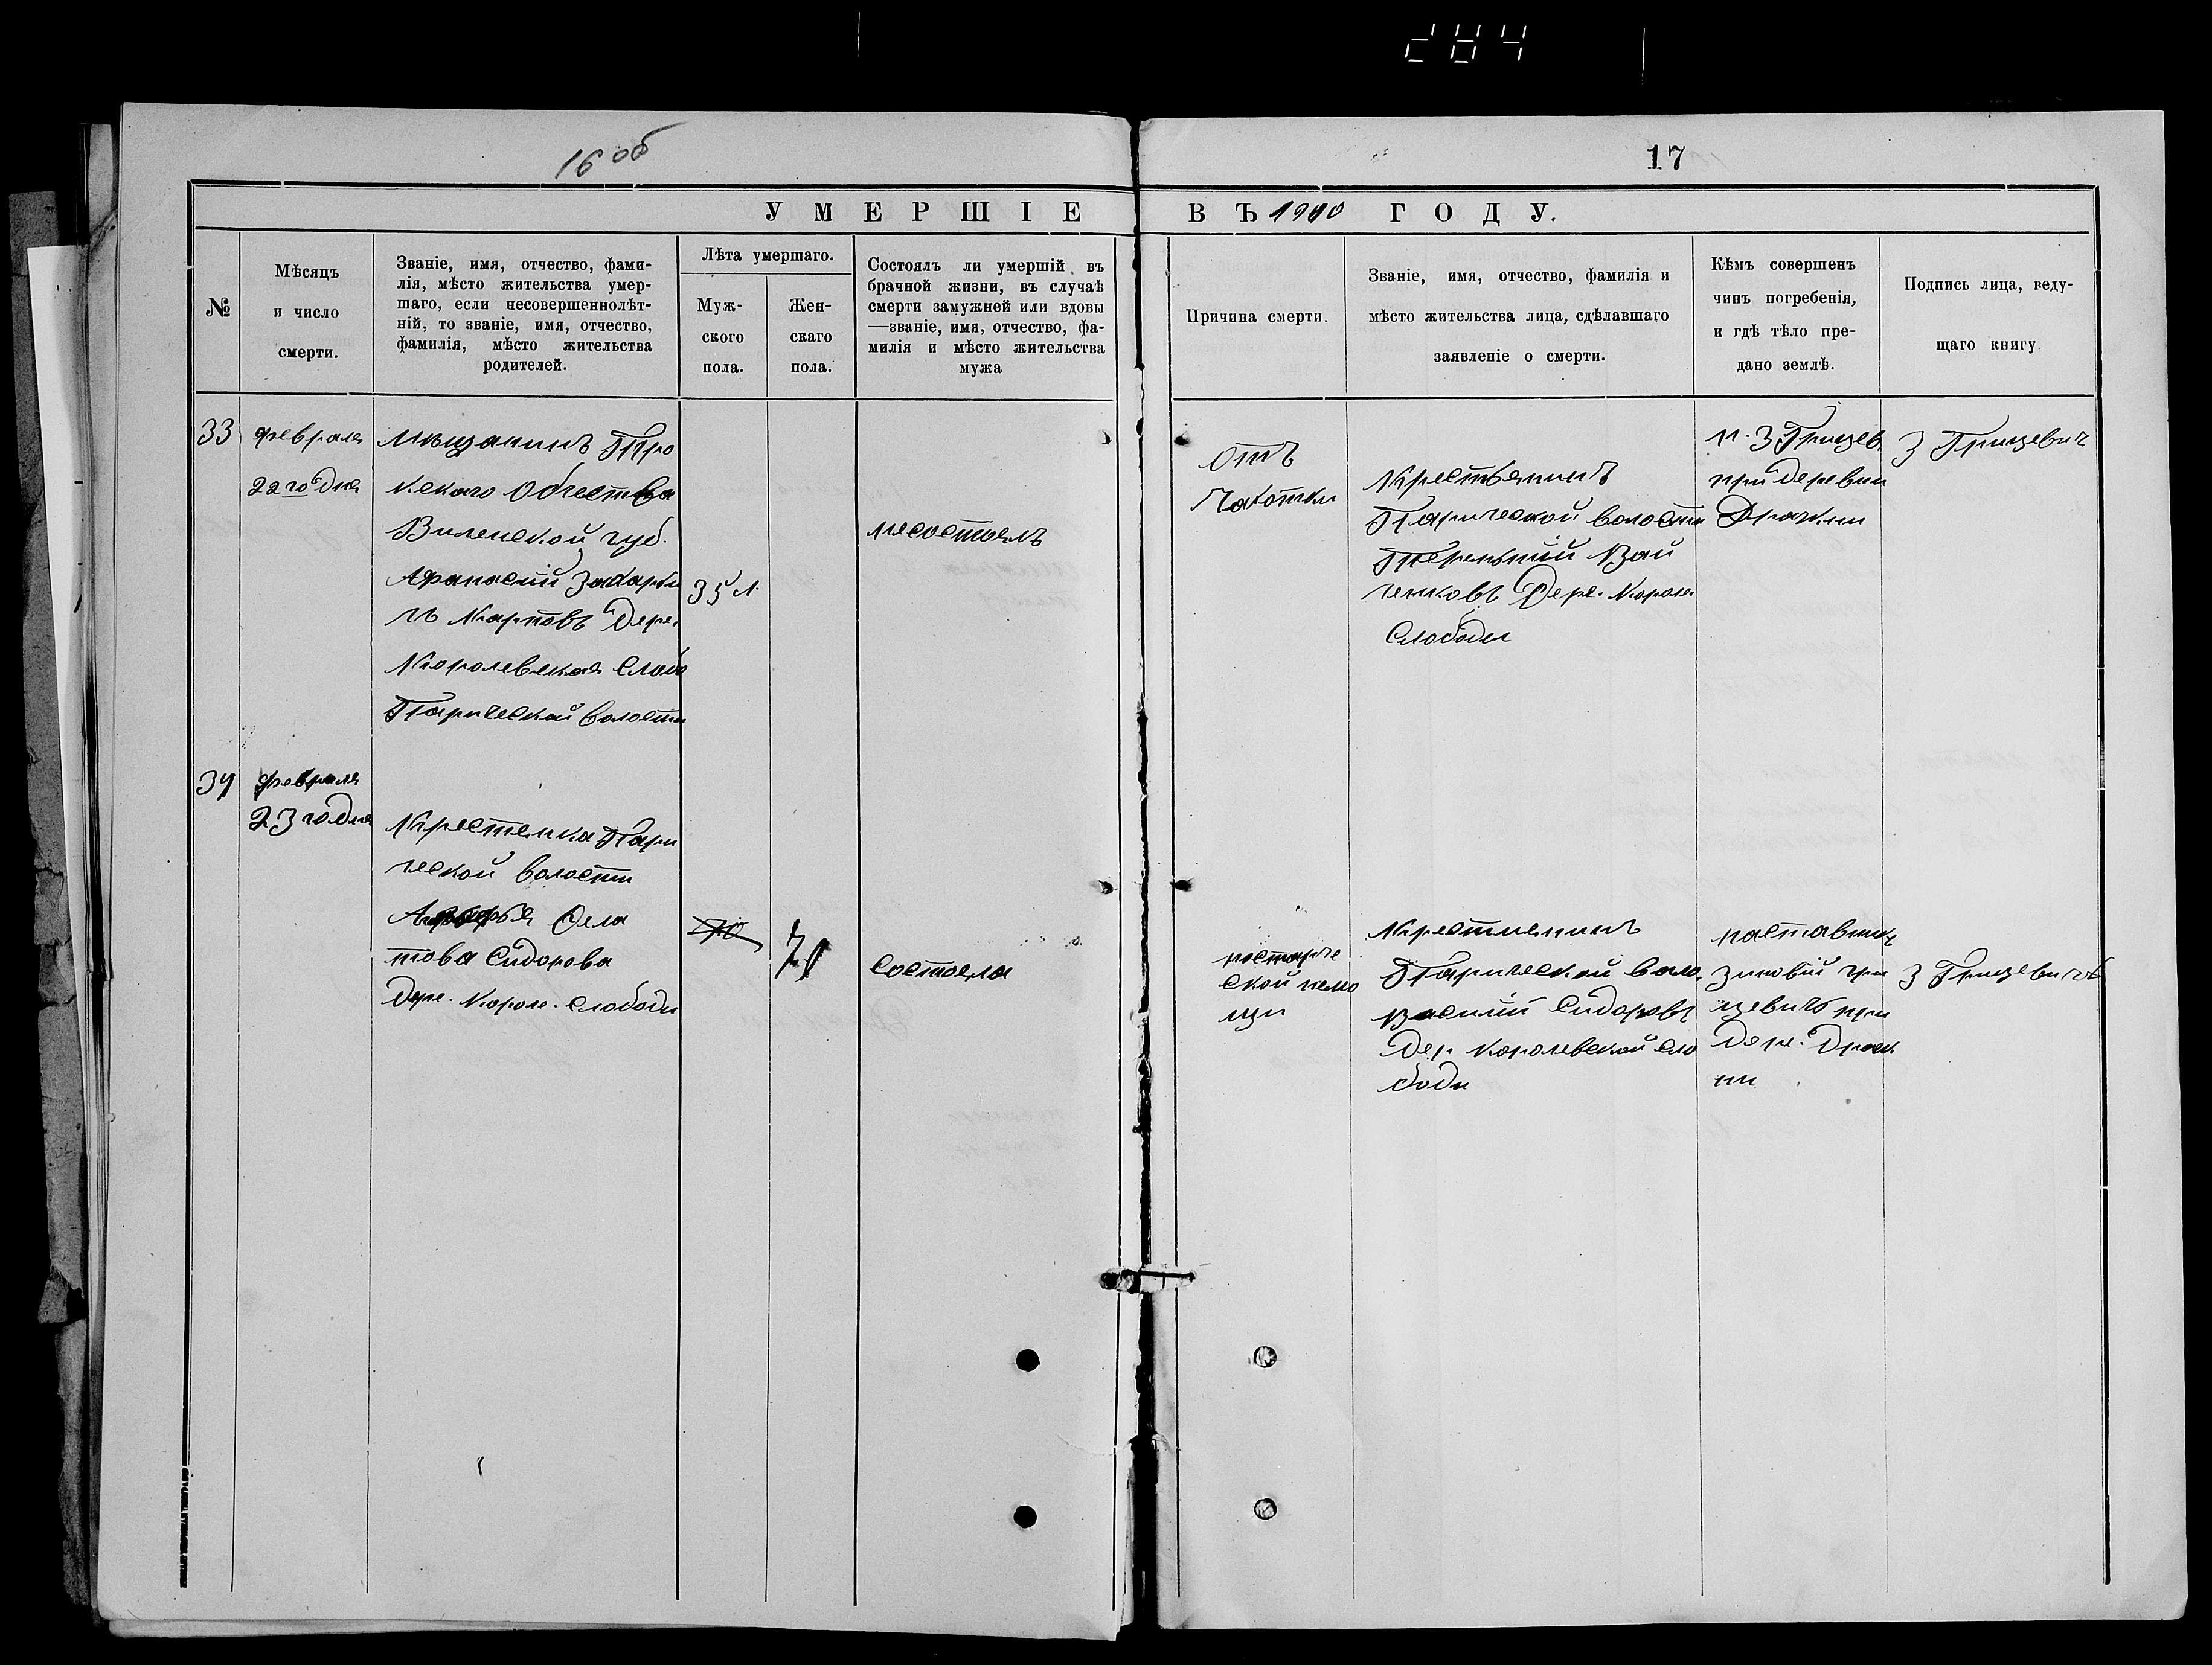 284
16 об
17
УМЕРШІЕ ВЪ 1910 ГОДУ.
№
Мѣсяцъ
и число
смерти.
Званіе, имя, отчество, фами-
лія, мѣсто жительства умер-
шаго, если несовершеннолѣт-
ній, то званіе, имя, отчество,
фамилія, мѣсто жительства
родителей.
Лѣта умершаго.
Муж-
ского
пола.
Жен-
скаго
пола.
Состоялъ ли умершій въ
брачной жизни, въ случаѣ
смерти замужней или вдовы
—званіе, имя, отчество, фа-
милія и мѣсто жительства
мужа
Причина смерти.
Званіе, имя, отчество, фамилія и
мѣсто жительства лица, сдѣлавшаго
заявленіе о смерти.
Кѣмъ совершенъ
чинъ погребенія,
и гдѣ тѣло пре-
дано землѣ.
Подпись лица, веду-
щаго книгу.
33
февраля
22 го дня
Мѣщанинъ Тро
кскаго Обчества
Виленской губ.
Афанасий Захарьи
чъ Карповъ Дере.
Королевская Слобо
Паричской волости
35 л.
несостоялъ
Отъ
Чахотки
Крестьянинъ
Паричской волости
Терентий Вай
ченковъ Дере. Короле
Слободы
н. З Грицев.
при деревни
Дражни
З Грицевич
34
февраля
23 го дня
Крестенка Пари
ческой волости
това Сидорова
Дере. Короле. Слободы
70
71
состояла
постарче
ской немо
щи
Крестиенинъ
Парической воло.
Василий Сидоровъ
Дер. Королевской сло
боды
наставникъ
Зиновий гри
цевичъ при
Дере. Драж
ни
З Грицевичъ